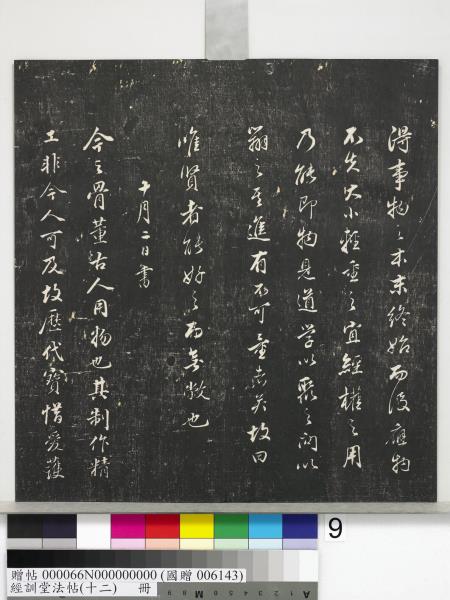 得事物之本末終始而後應物
不失大小輕重之宜經權之用
乃能即物見道學以聚之問以
辯之其進有不可量者矣故曰
唯賢者能好之而無敝也
十月二日書
今之骨董古人用物也其制作精
工非今人可及故歷代寶惜愛護
9
贈帖 000066N000000000 (國贈 006143)
經訓堂法帖(十二) 冊